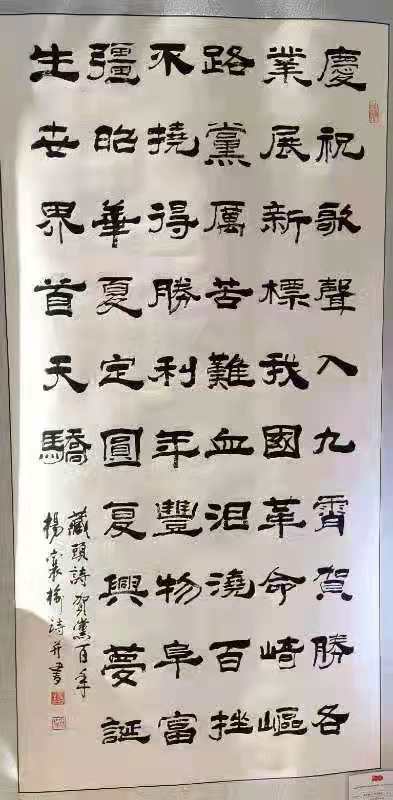 慶祝歌聲入九霄賀勝各
業展新標我國革命崎嶇
路黨厲苦難血泪澆百挫
不撓得勝利年豐物阜富
彊昭華夏定圓复興夢誕
生世界首天驕
藏頭詩賀黨百年
楊襄榆詩并書